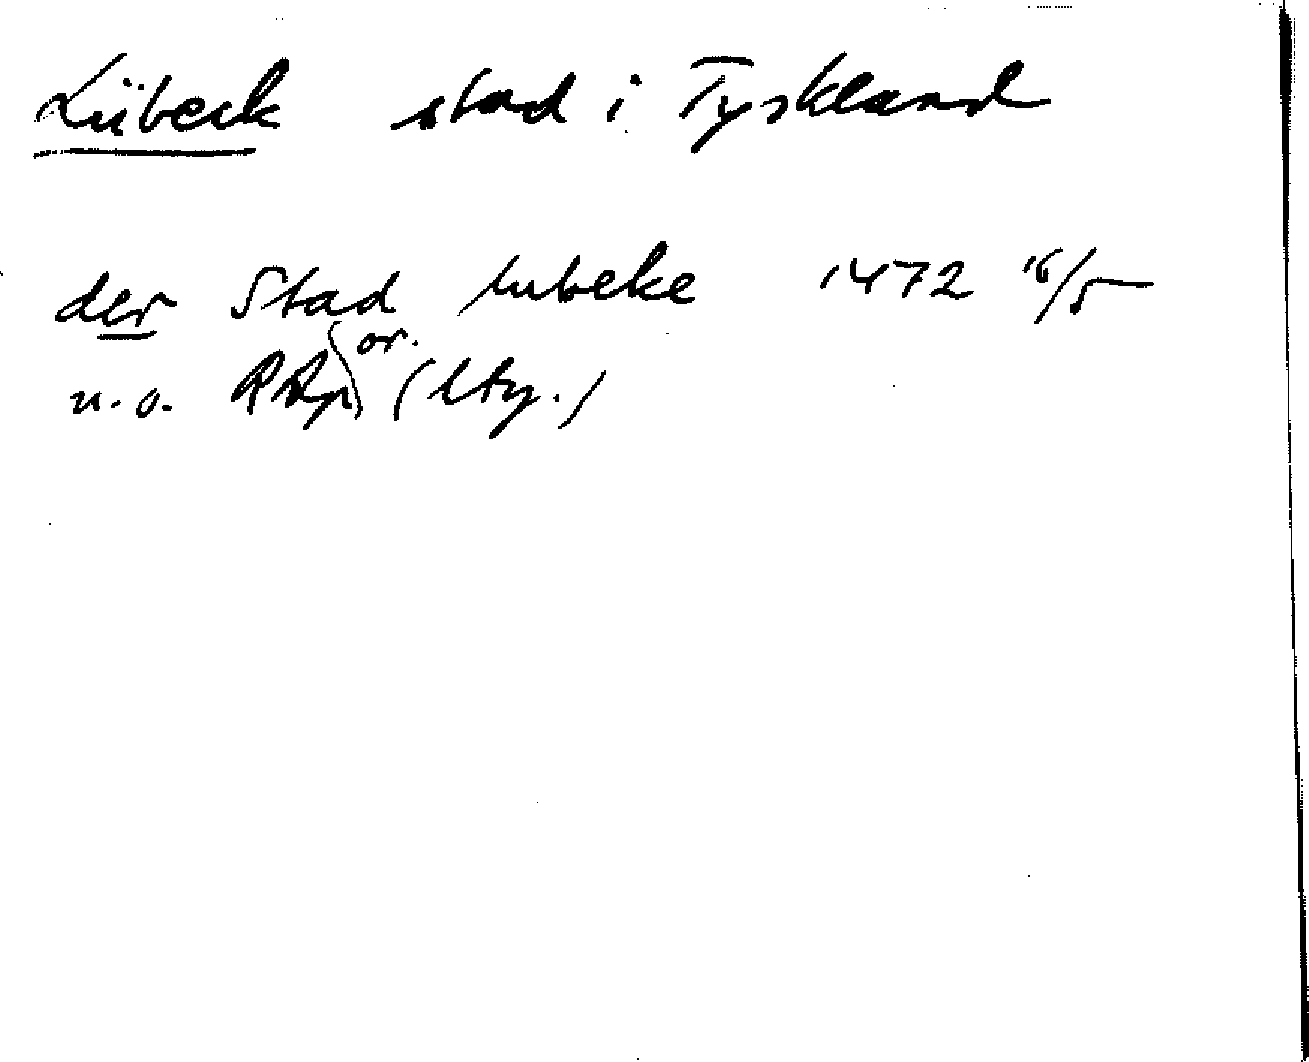 Lübeck stad i Tyskland
der Stad lubeke 1472 16/5
u.o. RAp or. (lty.)